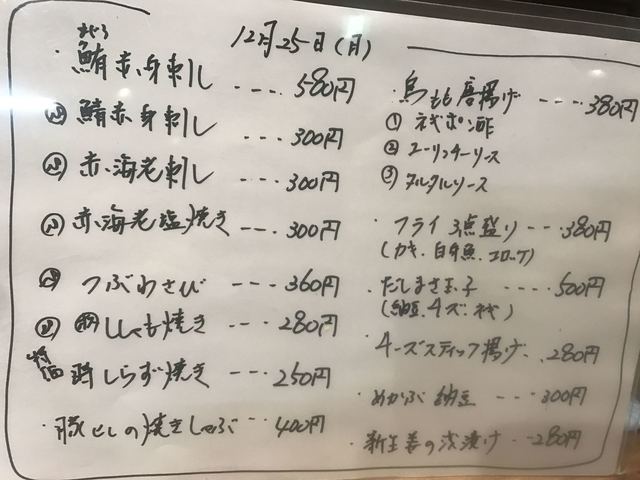 12月25日(月)
まぐろ
・鮪赤身刺し ---- 580円
鯖赤身刺し --- 300円
赤海老刺し --- 300円
赤海老塩焼き --- 300円
つぶわさび --- 360円
ししゃも焼き --- 280円
特価 しらず焼き --- 250円
・豚としの焼きしゃぶ --- 400円
・鳥もも唐揚げ ---- 380円
① ネギポン酢
② ユーリンチーソース
③ タルタルソース
・フライ3点盛り --- 380円
(カキ、白身魚、コロッケ)
・だしまき玉子 ---- 500円
(納豆、チーズ、ネギ)
・チーズスティック揚げ 280円
・めかぶ納豆 --- 300円
・新生姜の浅漬け --- 280円